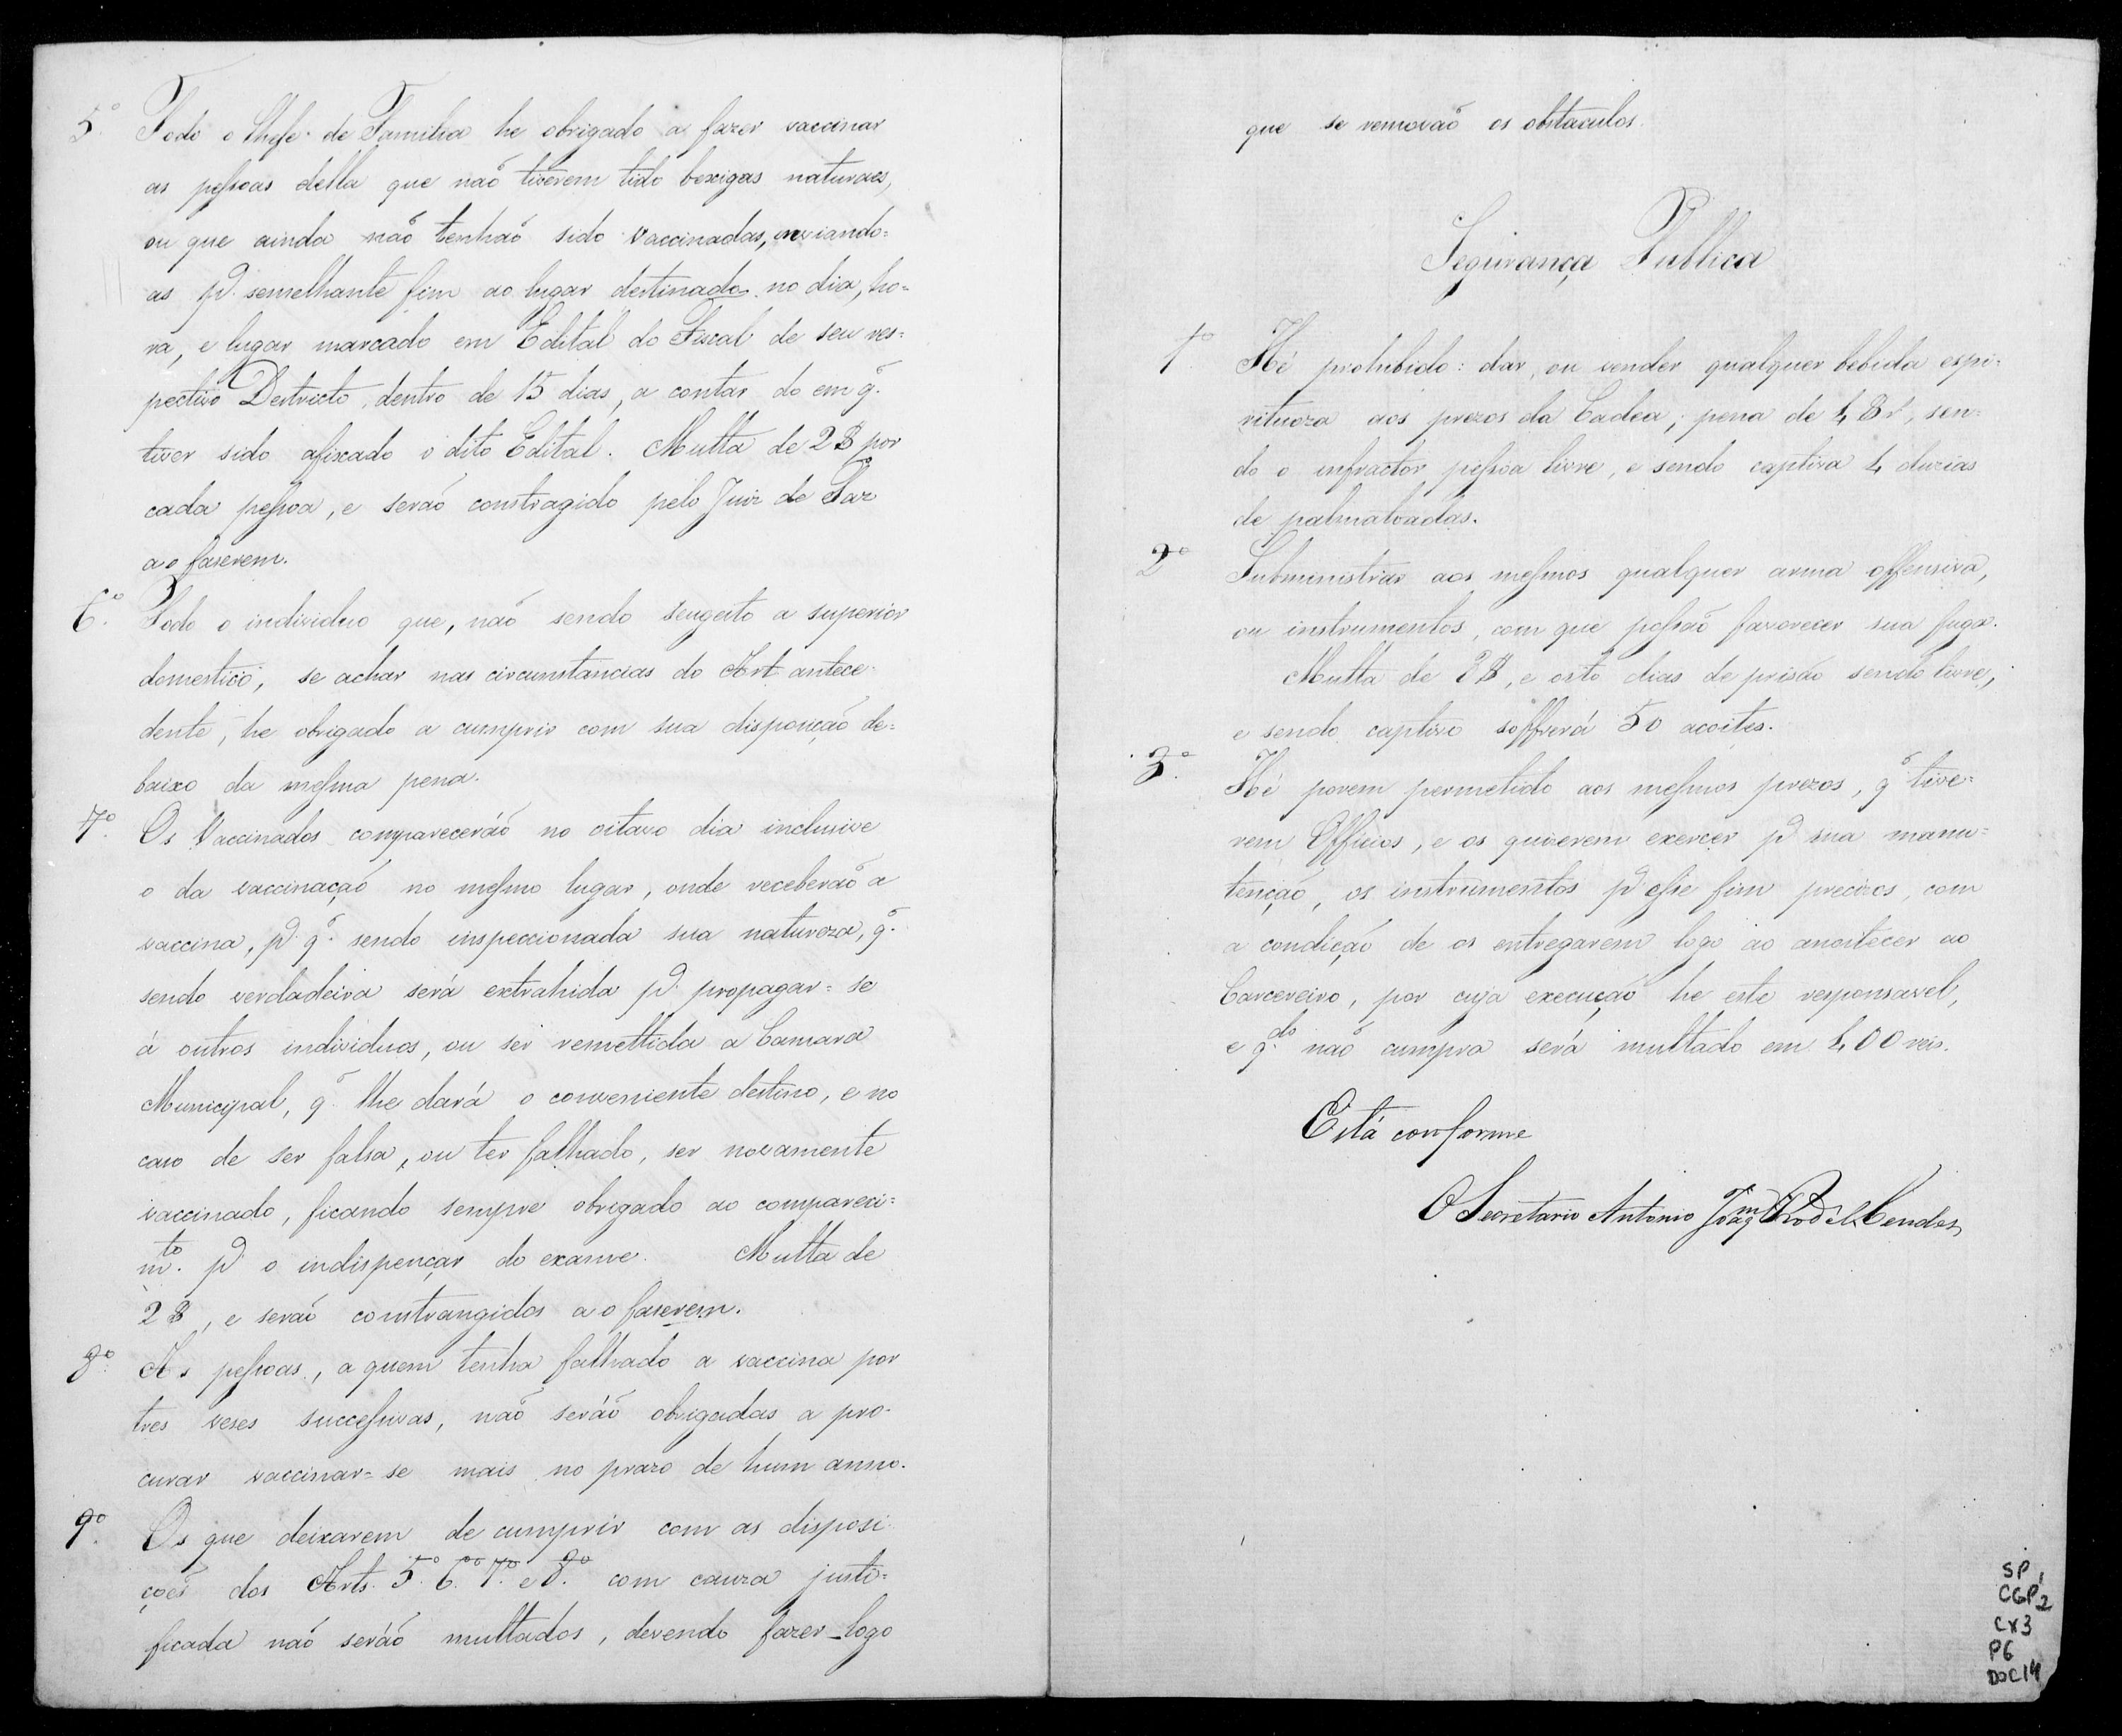 5.º Todo o Chefe de Familia he obrigado a fazer vaccinar
as peſsoas della que naõ tiverem tido bexigas naturaes,
ou que ainda naõ tenhaõ sido vaccinadas, enviando=
as p.ª semelhante fim ao lugar destinado no dia, ho=
ra, e lugar marcado em Edital do Fiscal de seu res=
pectivo Destricto, dentro de 15 dias, a contar do em q.
tiver sido afixado o dito Edital. Multa de 2$ por
cada peſsoa, e seraõ constragido pelo Juiz de Paz
a o faserem.
6.º Todo o individuo que, naõ sendo seugeito a superior
domestico, se achar nas circunstancias do Art antece=
dente, he obrigado a cumprir com sua disposiçaõ de=
baixo da meſma pena.
7.º Os Vaccinados compareceráõ no oitavo dia inclusive
o da vaccinaçaõ no meſmo lugar, onde receberaõ a
vaccina, p.ª q. sendo inspeccionada sua natureza, q.
sendo verdadeira será extrahida p.ª propagar=se
á outros individuos, ou ser remettida a Camara
Municipal, q. lhe dará o conveniente destino, e no
caso de ser falsa, ou ter falhado, ser novamente
vaccinado, ficando sempre obrigado ao compareci=
m.to p.ª o indispençar do exame. Multa de
2$, e seraõ constrangidos a o faserem.
8.º As peſsoas, a quem tenha falhado a vaccina por
tres veses succeſsivas, naõ seráõ obrigadas a pro=
curar vaccinar=se mais no prazo de hum anno.
9.º Os que deixarem de cumprir com as disposi
çoẽs dos Arts. 5.º 6.º 7.º e 8.º com cauza justi=
ficada naõ seráõ multados, devendo fazer logo
que se removaõ os obstaculos.
Segurança Publica
1.º Hé prohibido: dar, ou vender qualquer bebida espi=
rituoza aos prezos da Cadea; pena de 4$r.s, sen=
do o infractor peſsoa livre, e sendo captiva 4 duzias
de palmatoadas.
2.º Subministrar aos meſmos qualquer arma offensiva,
ou instrumentos, com que poſsaõ favorecer sua fuga.
Multa de 8$, e oito dias de prisaõ sendo livre,
e sendo captivo soffrerá 50 açoites.
3.º Hé porem permetido aos meſmos prezos, q. tive=
rem Officios, e os quizerem exercer p.ª sua manu=
tençaõ, os instrumentos p.ª eſse fim precizos, com
a condiçaõ de os entregarem logo ao anoitecer ao
Carcereiro, por cuja execuçaõ he este responsavel,
e q.do naõ cumpra será multado em 400 reis.
Está conforme
O Secretario Antonio Joaq.m Mendes
SP1
CGP2
CX3
P6
DOC14